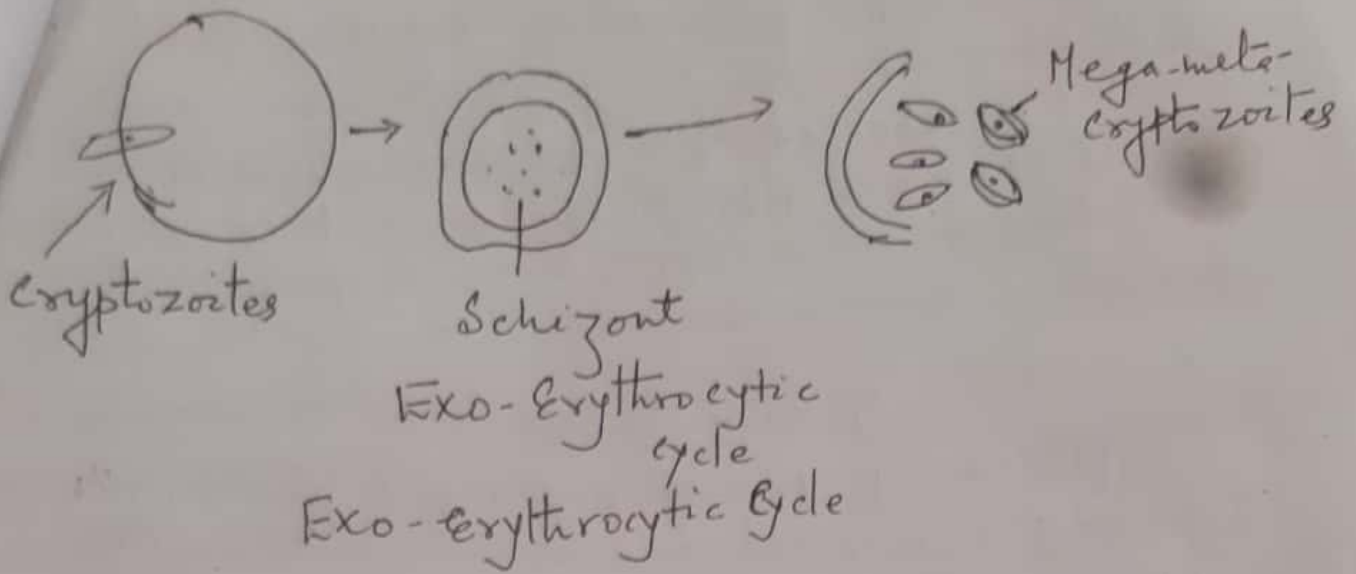 Mega-meta-
cryptozoites
Cryptozoites
Schizont
Exo-Erythrocytic
cycle
Exo-erythrocytic Cycle